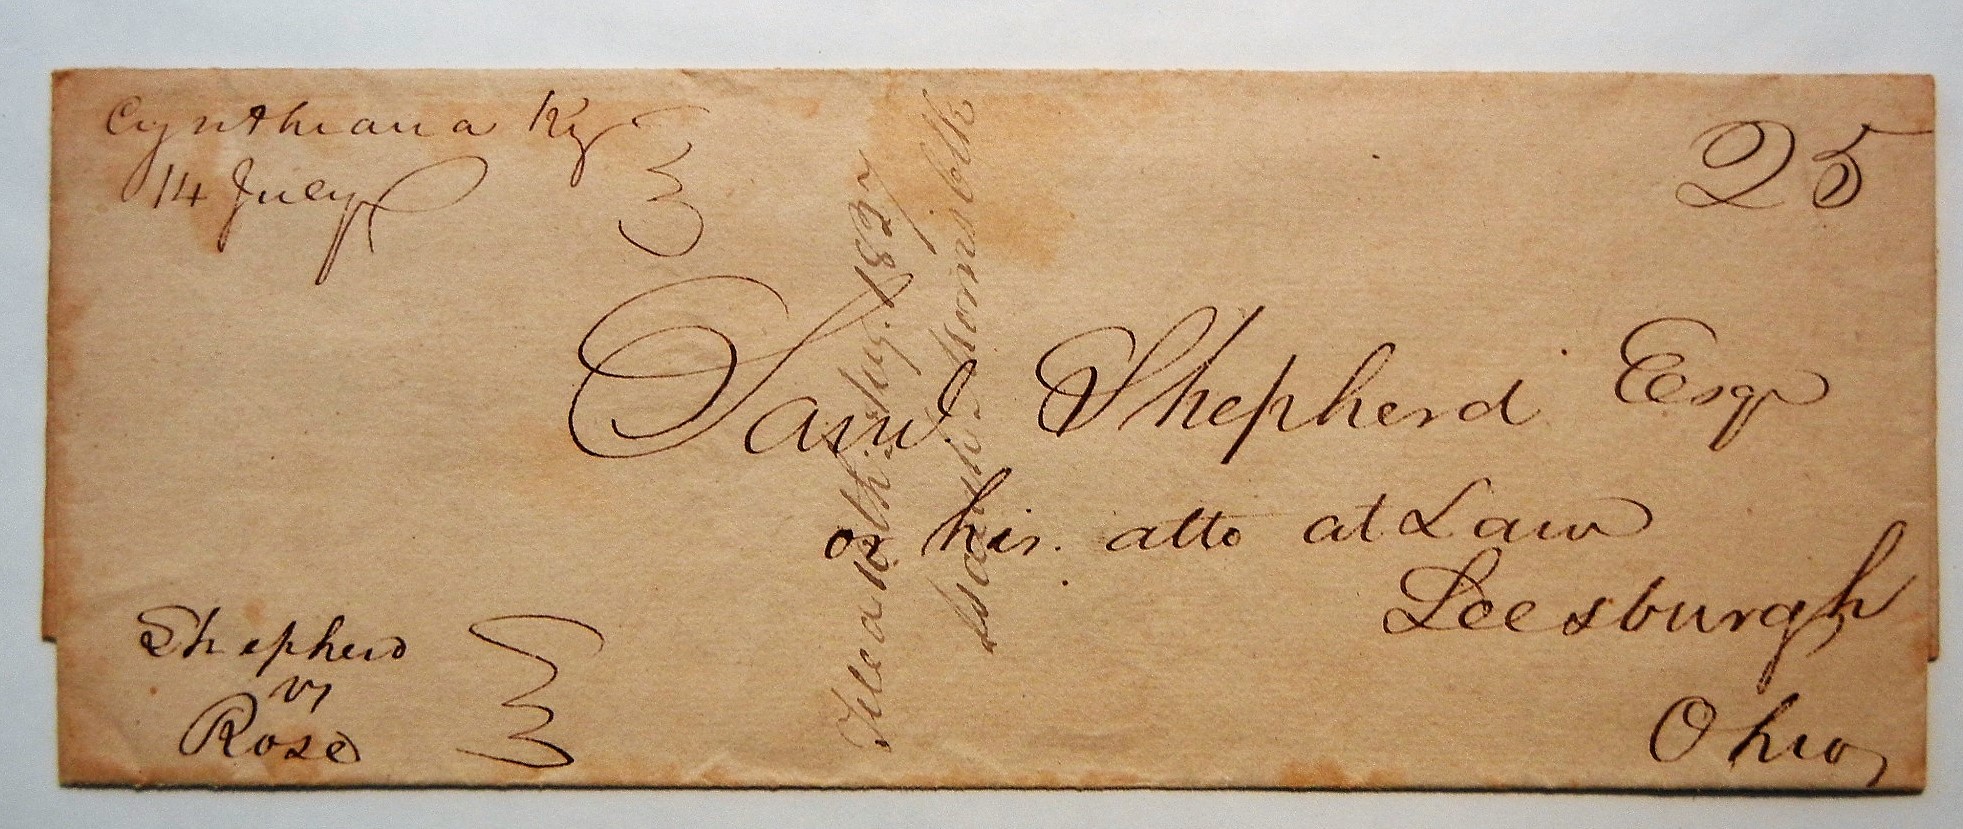 Cynthiana Ky
14 July
25
Saml Shepherd Esqr
or his atto at Law
Leesburgh
Ohio
Shepherd
vs
Rose
Filed 10th Aug. 1827
Morris Clk